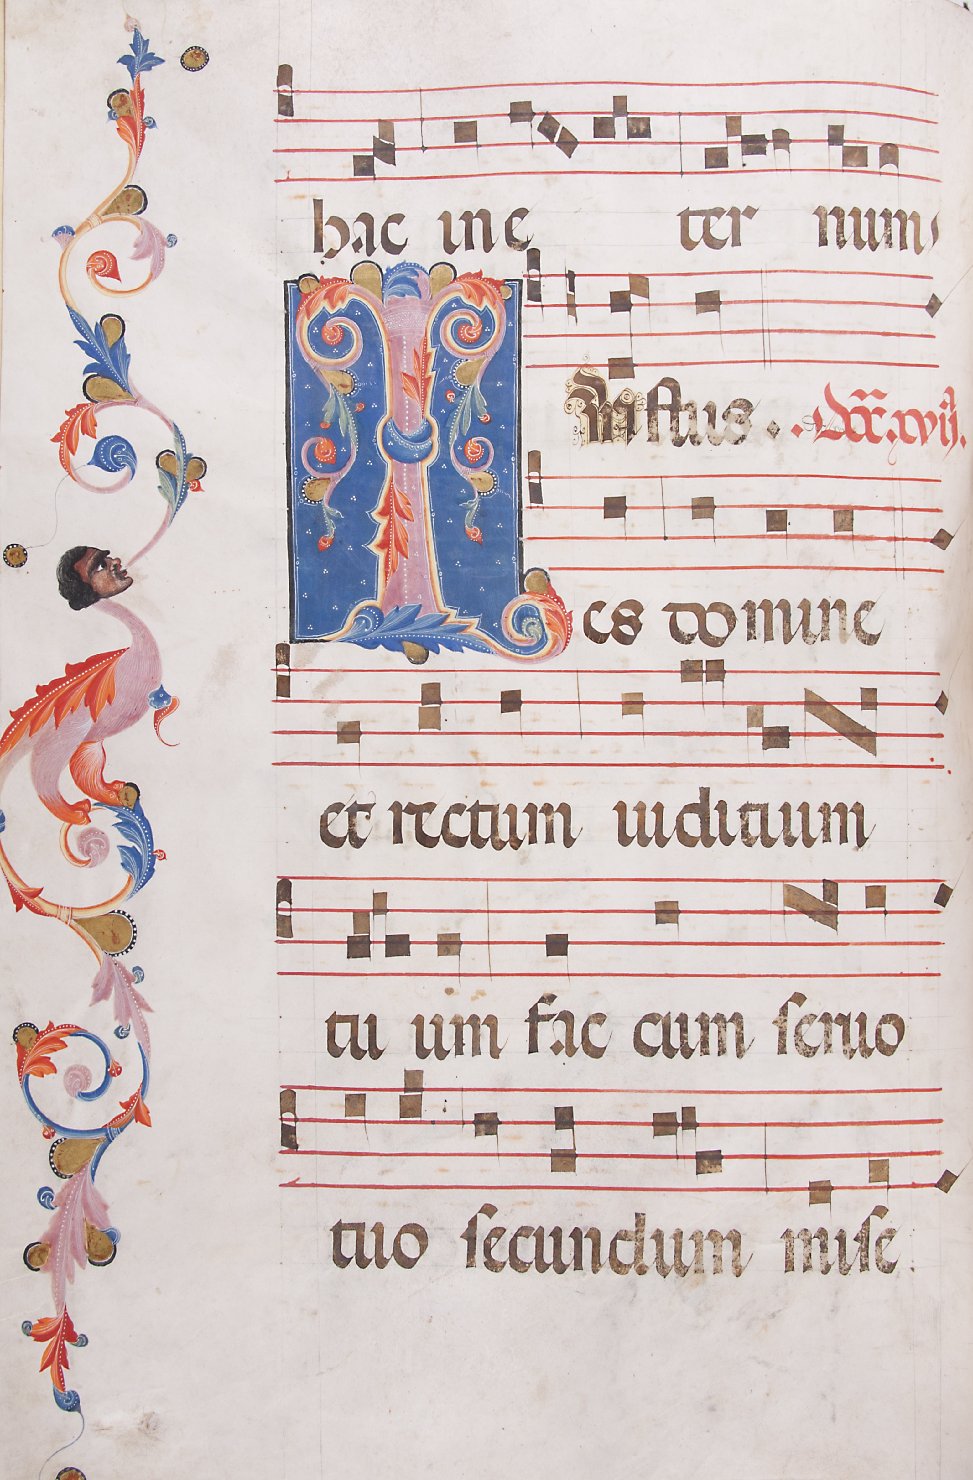 hac in e ter num
Iustus. . Dcc.xvij.
I es domine
et rectum iuditium
tu um fac cum seruo
tuo secundum mise